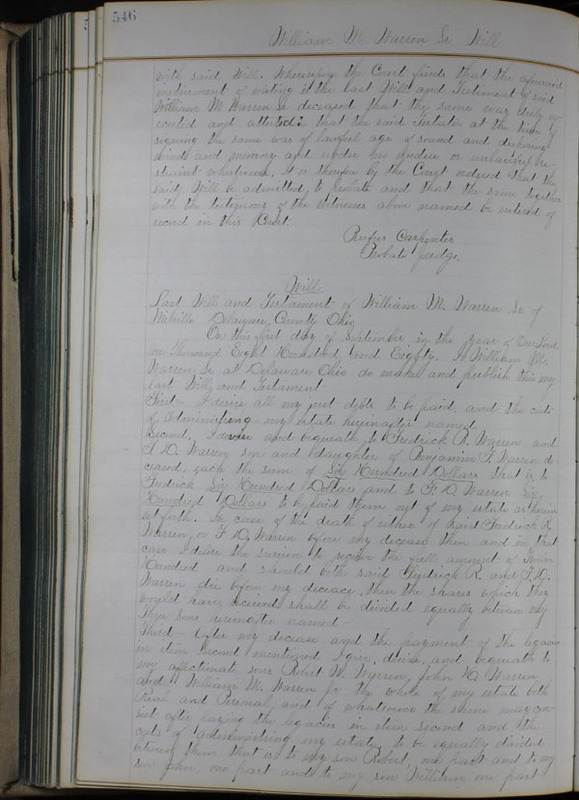 546
William M. Warren Sr Will
with said Will. Whereupon the Court finds that the aforesaid
instrument of writing is the last Will and Testament of said
William M Warren Sr deceased that the same was duly ex
ecuted and attested; that the said Testator at the time of
signing the same was of lawful age of sound and disposing
mind and memory and under no undue or unlawful re
straint whatever. It is therefore by the Court ordered that the
said Will be admitted to probate and that the same together
with the testimony of the witnesses above named be entered of
record in this Court.
Rufus Carpenter
Probate Judge.
Will
Last Will and Testament of William M. Warren Sr of
Delaware County Ohio
On this first day of September in the year of Our Lord
one Thousand Eight Hundred and Eighty. I William M.
Warren Sr at Delaware Ohio do make and publish this my
last Will and Testament
First I desire all my just debts to be paid, and the costs
of administering my estate hereinafter named
Second. I devise and bequeath to Fredrick R. Warren and
F D. Warren son and daughter of Benjamin F. Warren de
ceased, each the sum of Six Hundred Dollars that is to
Fredrick Six Hundred Dollars and to F. D. Warren Six
Hundred Dollars to be paid them out of my estate as herein
set forth. In case of the death of either of said Fredrick R.
Warren, or F D. Warren before my decease then and in that
case I desire the survivor to receive the full amount of Twelve
Hundred and should both said Fredrick R. and F. D.
Warren die before my decease, then the shares which they
would have received shall be divided equally between my
three sons hereinafter named
Third After my decease and the payment of the legacies
in item second mentioned I give, devise, and bequeath to
my affectionate sons Robert W. Warren, John A. Warren
and William M. Warren Jr the whole of my estate both
Real and Personal and of whatsoever the same may con
sist after paying the legacies in item second and the
costs of administering my estate, to be equally divided
between them that is to my son Robert, one part and to my
son John, one part and to my son William one part